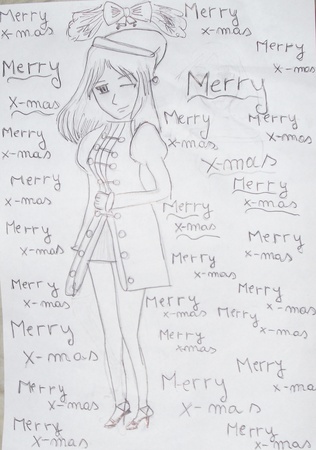 Merry
x-mas
Merry
x-mas
Merry
x-mas
Merry
x-mas
Merry
x-mas
Merry
x-mas
Merry
x-mas
Merry
x-mas
Merry
x-mas
Merry
x-mas
Merry
x-mas
Merry
x-mas
Merry
x-mas
Merry
x-mas
Merry
x-mas
Merry
x-mas
Merry
x-mas
Merry
x-mas
Merry
x-mas
Merry
x-mas
Merry
x-mas
Merry
x-mas
Merry
x-mas
Merry
x-mas
Merry
x-mas